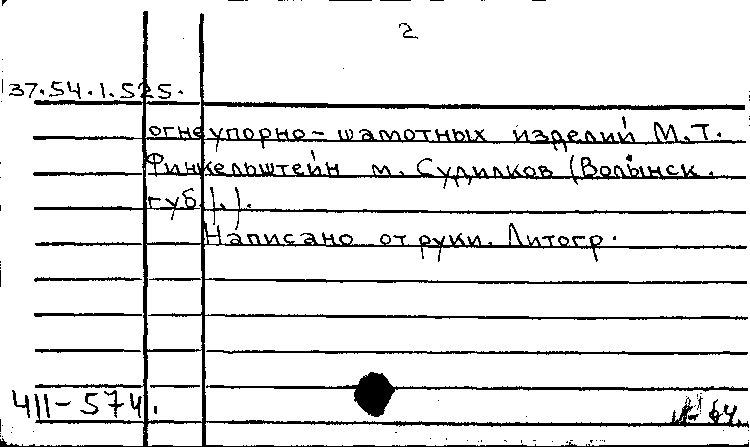 2
37.54.1.525.
огнеупорно-шамотных изделий М.Т.
Финкельштейн м. Судилков (Волынск.
губ.).
Написано от руки. Литогр.
411-574.